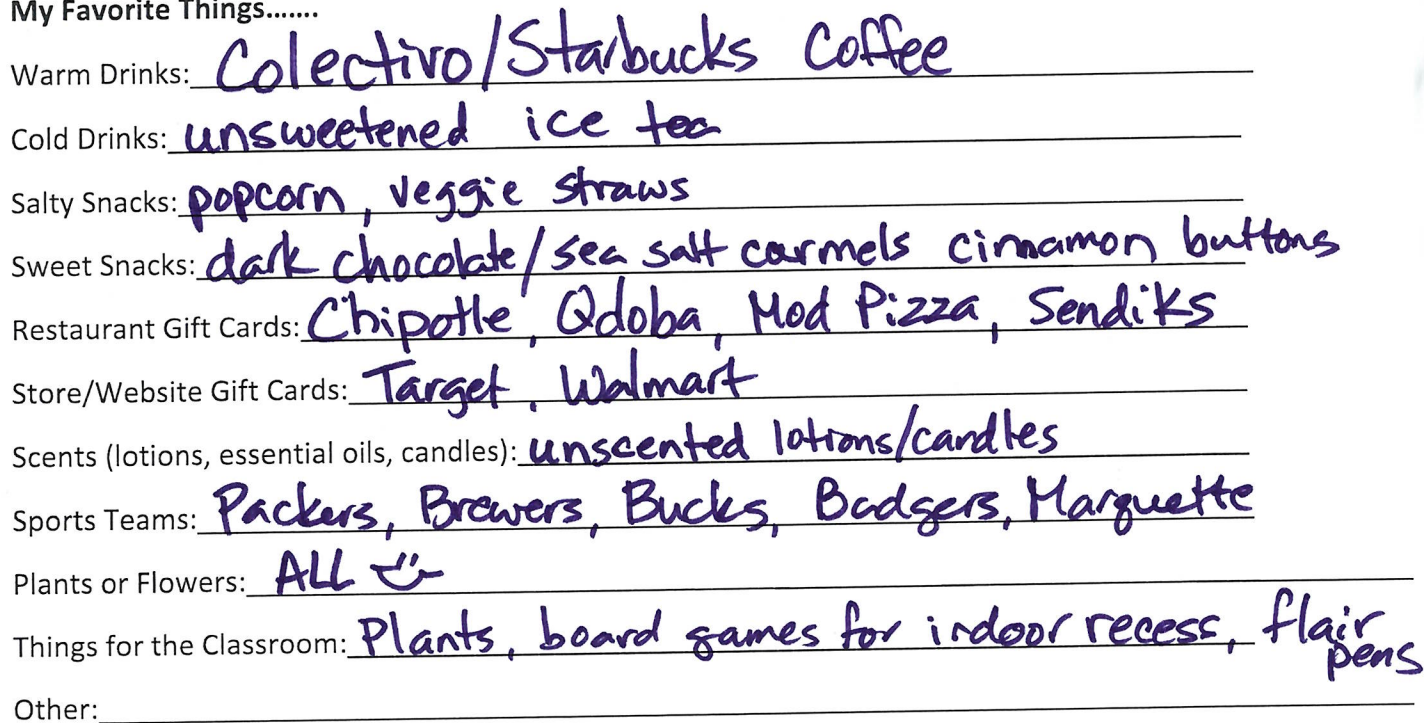 My Favorite Things.......
Warm Drinks: Colectivo/Starbucks Coffee
Cold Drinks: unsweetened ice tea
Salty Snacks: popcorn, veggie straws
Sweet Snacks: dark chocolate/sea salt carmels cinnamon buttons
Restaurant Gift Cards: Chipotle, Qdoba, Mod Pizza, Sendiks
Store/Website Gift Cards: Target, Walmart
Scents (lotions, essential oils, candles): unscented lotions/candles
Sports Teams: Packers, Brewers, Bucks, Badgers, Marquette
Plants or Flowers: ALL
Things for the Classroom: Plants, board games for indoor recess, flair
pens
Other: